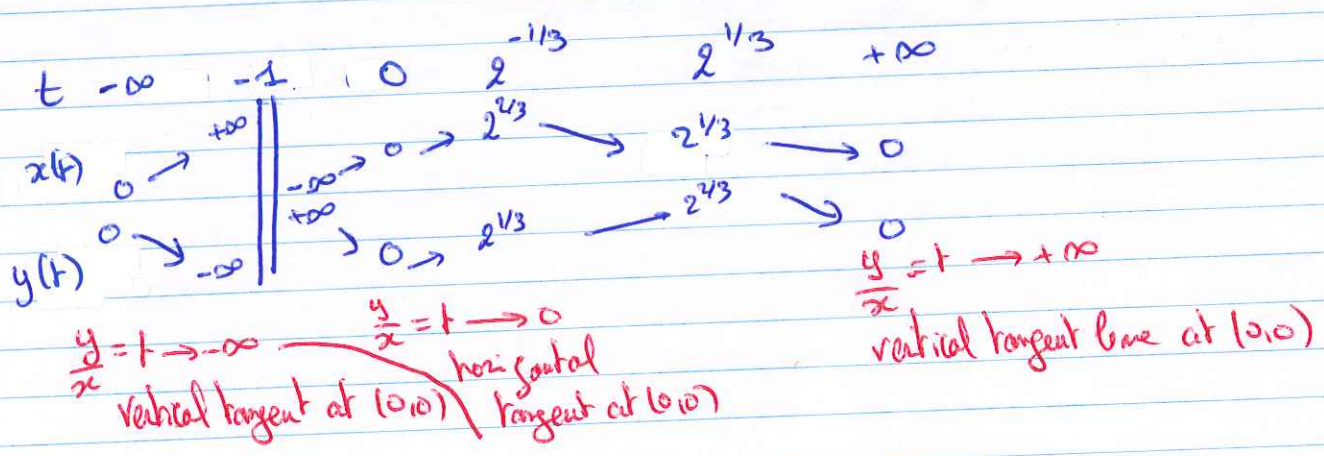 t -∞ -1 0 2^{-1/3} 2^{1/3} +∞
x(t) 0 ↗ +∞ || -∞ ↗ 0 ↗ 2^{2/3} ↘ 2^{1/3} → 0
y(t) 0 ↘ -∞ || +∞ ↘ 0 ↗ 2^{1/3} → 2^{2/3} ↘ 0
y/x = t → -∞
vertical tangent at (0,0)
y/x = t → 0
horizontal
tangent at (0,0)
y/x = t → +∞
vertical tangent line at (0,0)